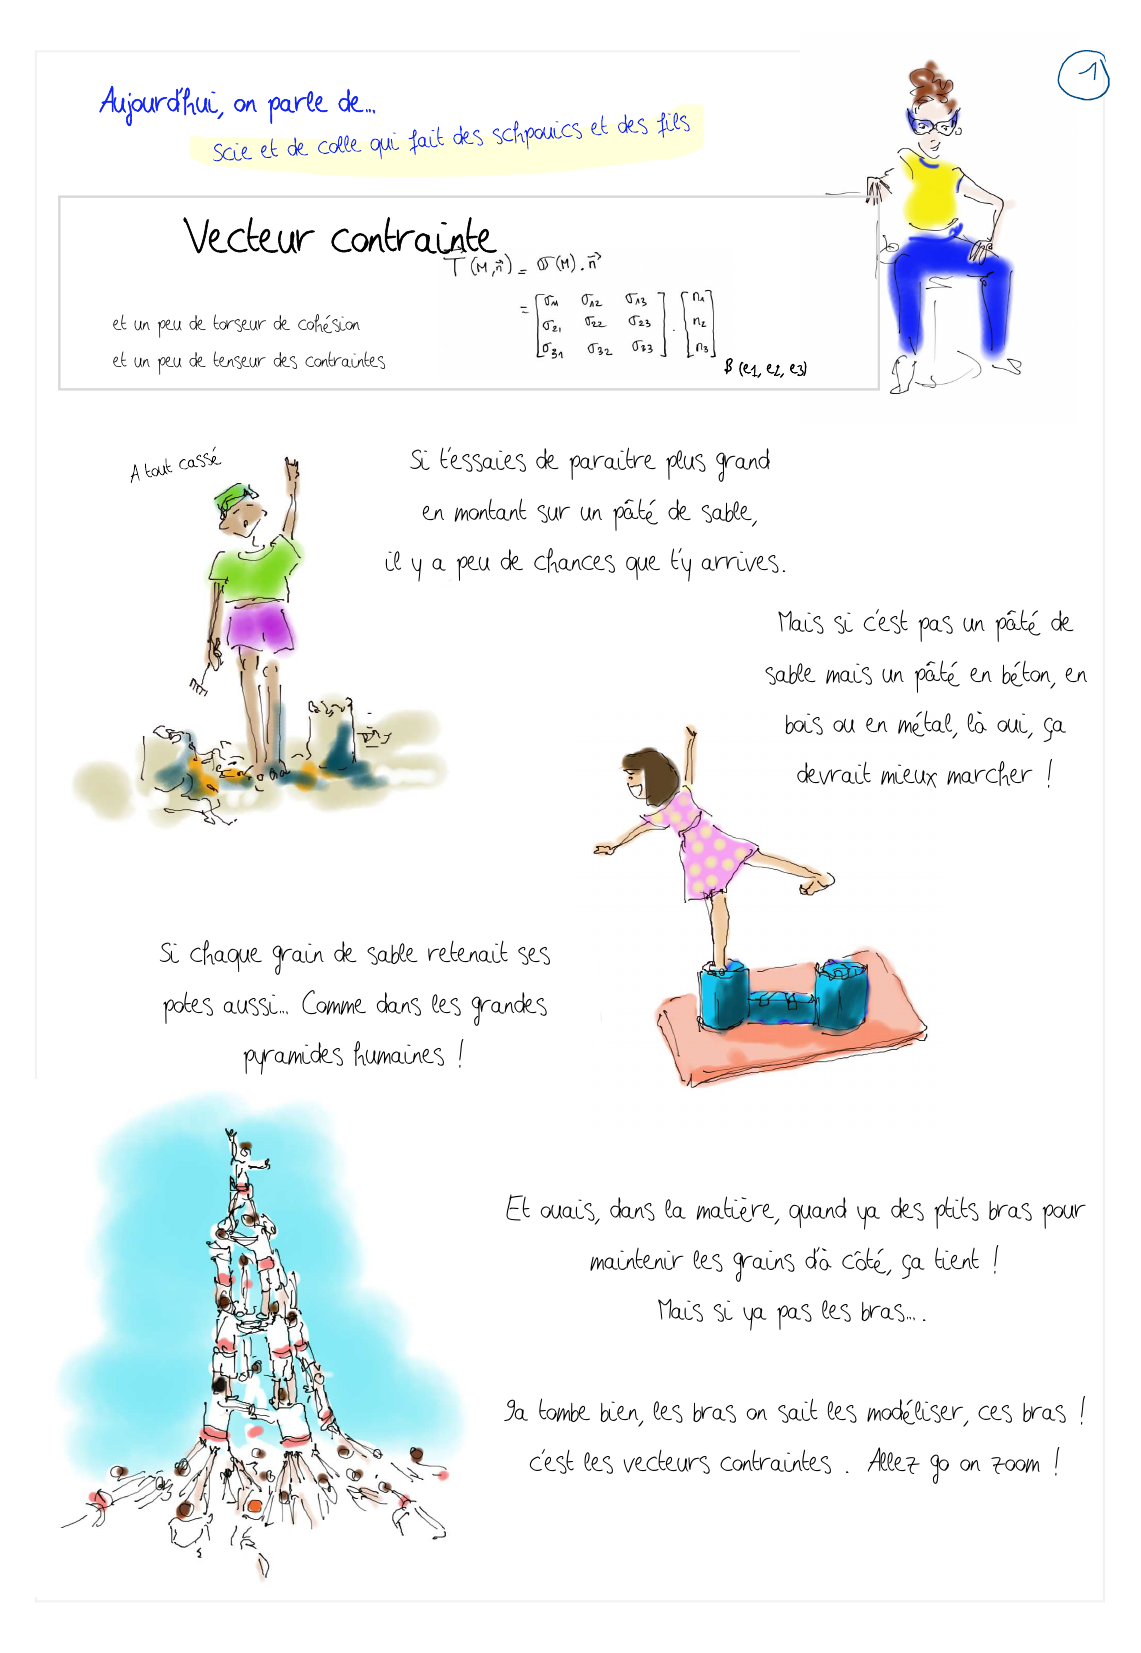 1
Aujourd'hui, on parle de...
scie et de colle qui fait des schpouics et des fils
Vecteur contrainte
T⃗ (M, n⃗) = σ(M) . n⃗
= [σ11 σ12 σ13] [n1]
[σ21 σ22 σ23] . [n2]
[σ31 σ32 σ33] [n3]
β (e1, e2, e3)
et un peu de torseur de cohésion
et un peu de tenseur des contraintes
A tout cassé
Si t'essaies de paraitre plus grand
en montant sur un pâté de sable,
il y a peu de chances que t'y arrives.
Mais si c'est pas un pâté de
sable mais un pâté en béton, en
bois ou en métal, là oui, ça
devrait mieux marcher !
Si chaque grain de sable retenait ses
potes aussi... Comme dans les grandes
pyramides humaines !
Et ouais, dans la matière, quand ya des ptits bras pour
maintenir les grains d'à côté, ça tient !
Mais si ya pas les bras....
ça tombe bien, les bras on sait les modéliser, ces bras !
c'est les vecteurs contraintes . Allez go on zoom !